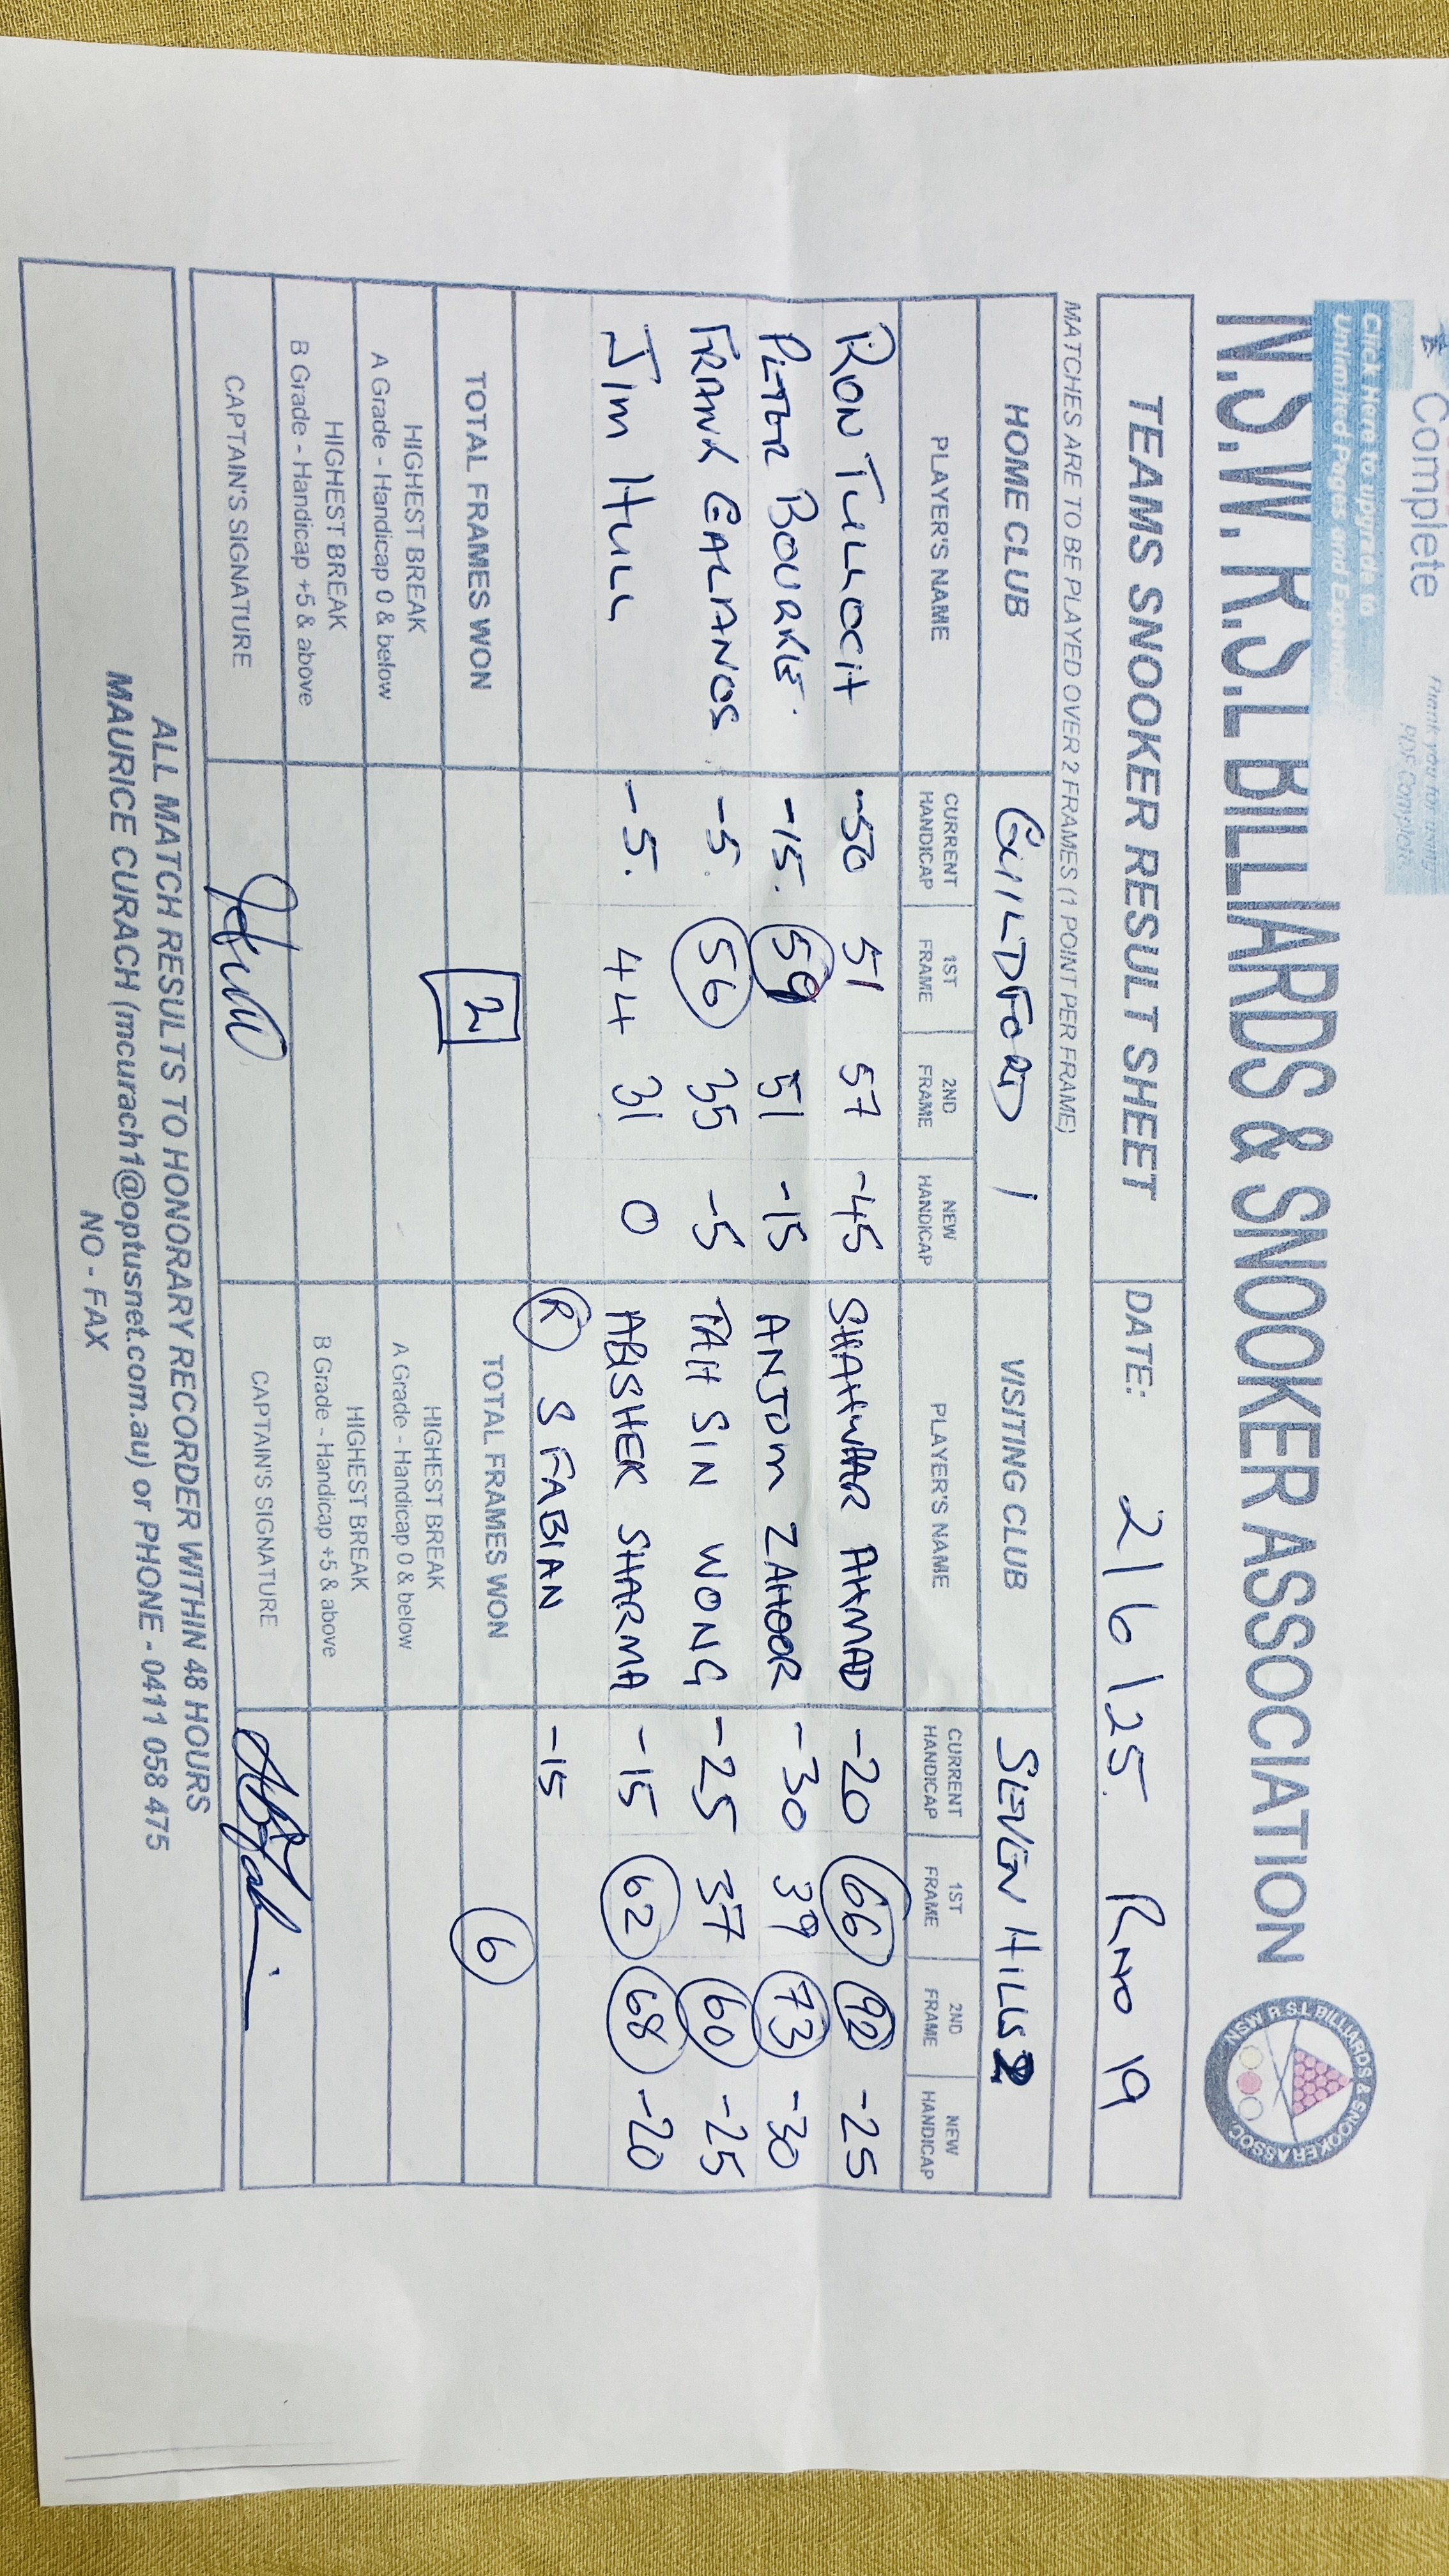 Complete
Thank you for using
PDF Complete.
Click Here to upgrade to
Unlimited Pages and Expanded
N.S.W. R.S.L BILLIARDS & SNOOKER ASSOCIATION
NSW R.S.L BILLIARDS & SNOOKER ASSOC
TEAMS SNOOKER RESULT SHEET DATE: 2/6/25. RND 19
MATCHES ARE TO BE PLAYED OVER 2 FRAMES (1 POINT PER FRAME)
HOME CLUB GUILDFORD 1 VISITING CLUB SEVEN HILLS 2
PLAYER'S NAME CURRENT HANDICAP 1ST FRAME 2ND FRAME NEW HANDICAP PLAYER'S NAME CURRENT HANDICAP 1ST FRAME 2ND FRAME NEW HANDICAP
RON TULLOCH -50 51 57 -45 SHAHWAR AHMAD -20 66 90 -25
PETER BOURKE. -15. 59 51 -15 ANJOM ZAHOOR -30 39 73 -30
FRANK GALANOS. -5. 56 35 -5 TAH SIN WONG -25 37 60 -25
JIM HULL -5. 44 31 0 ABISHEK SHARMA -15 62 68 -20
R S FABIAN -15
TOTAL FRAMES WON 2 TOTAL FRAMES WON 6
HIGHEST BREAK HIGHEST BREAK
A Grade - Handicap 0 & below A Grade - Handicap 0 & below
HIGHEST BREAK HIGHEST BREAK
B Grade - Handicap +5 & above B Grade - Handicap +5 & above
CAPTAIN'S SIGNATURE CAPTAIN'S SIGNATURE
ALL MATCH RESULTS TO HONORARY RECORDER WITHIN 48 HOURS
MAURICE CURACH (mcurach1@optusnet.com.au) or PHONE - 0411 058 475
NO - FAX